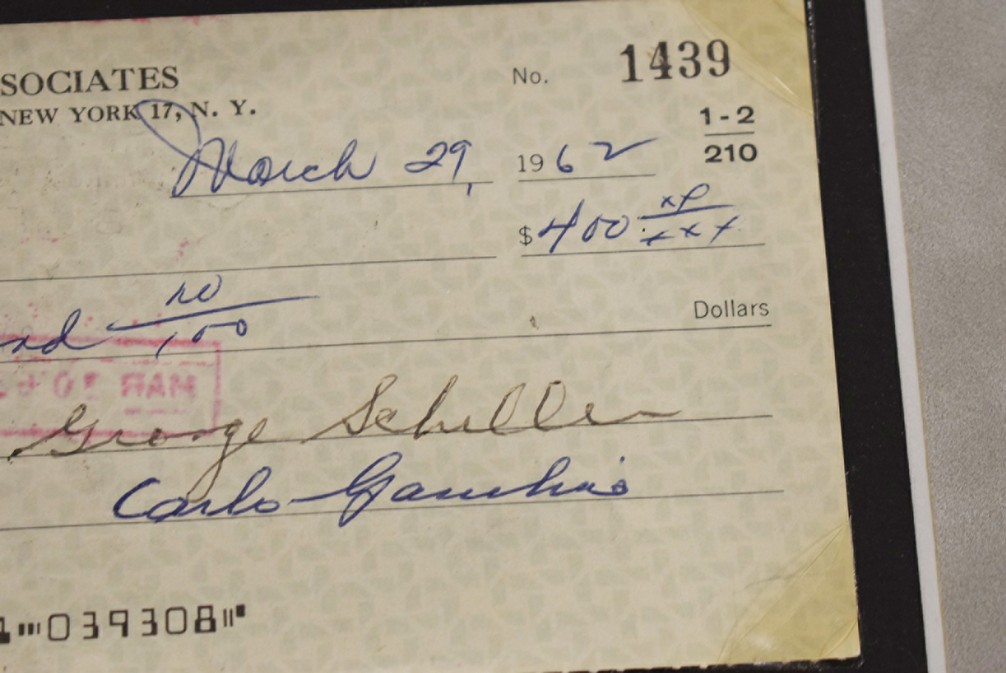 SOCIATES
No. 1439
NEW YORK 17, N. Y.
1-2
210
March 29, 1962
$400 xx
xxx
nd no
100
Dollars
George Schiller
Carlo Gambino
039308